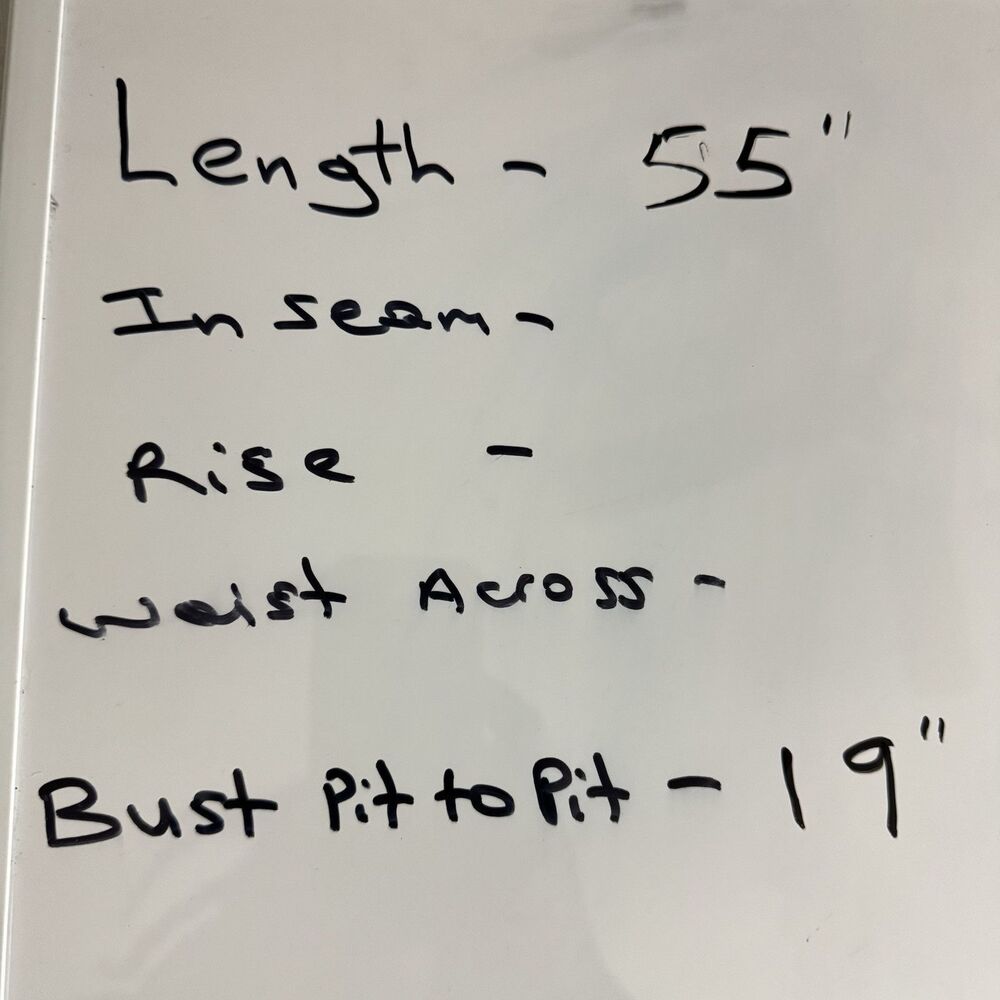 Length - 55"
Inseam -
Rise -
Waist Across -
Bust Pit to Pit - 19"